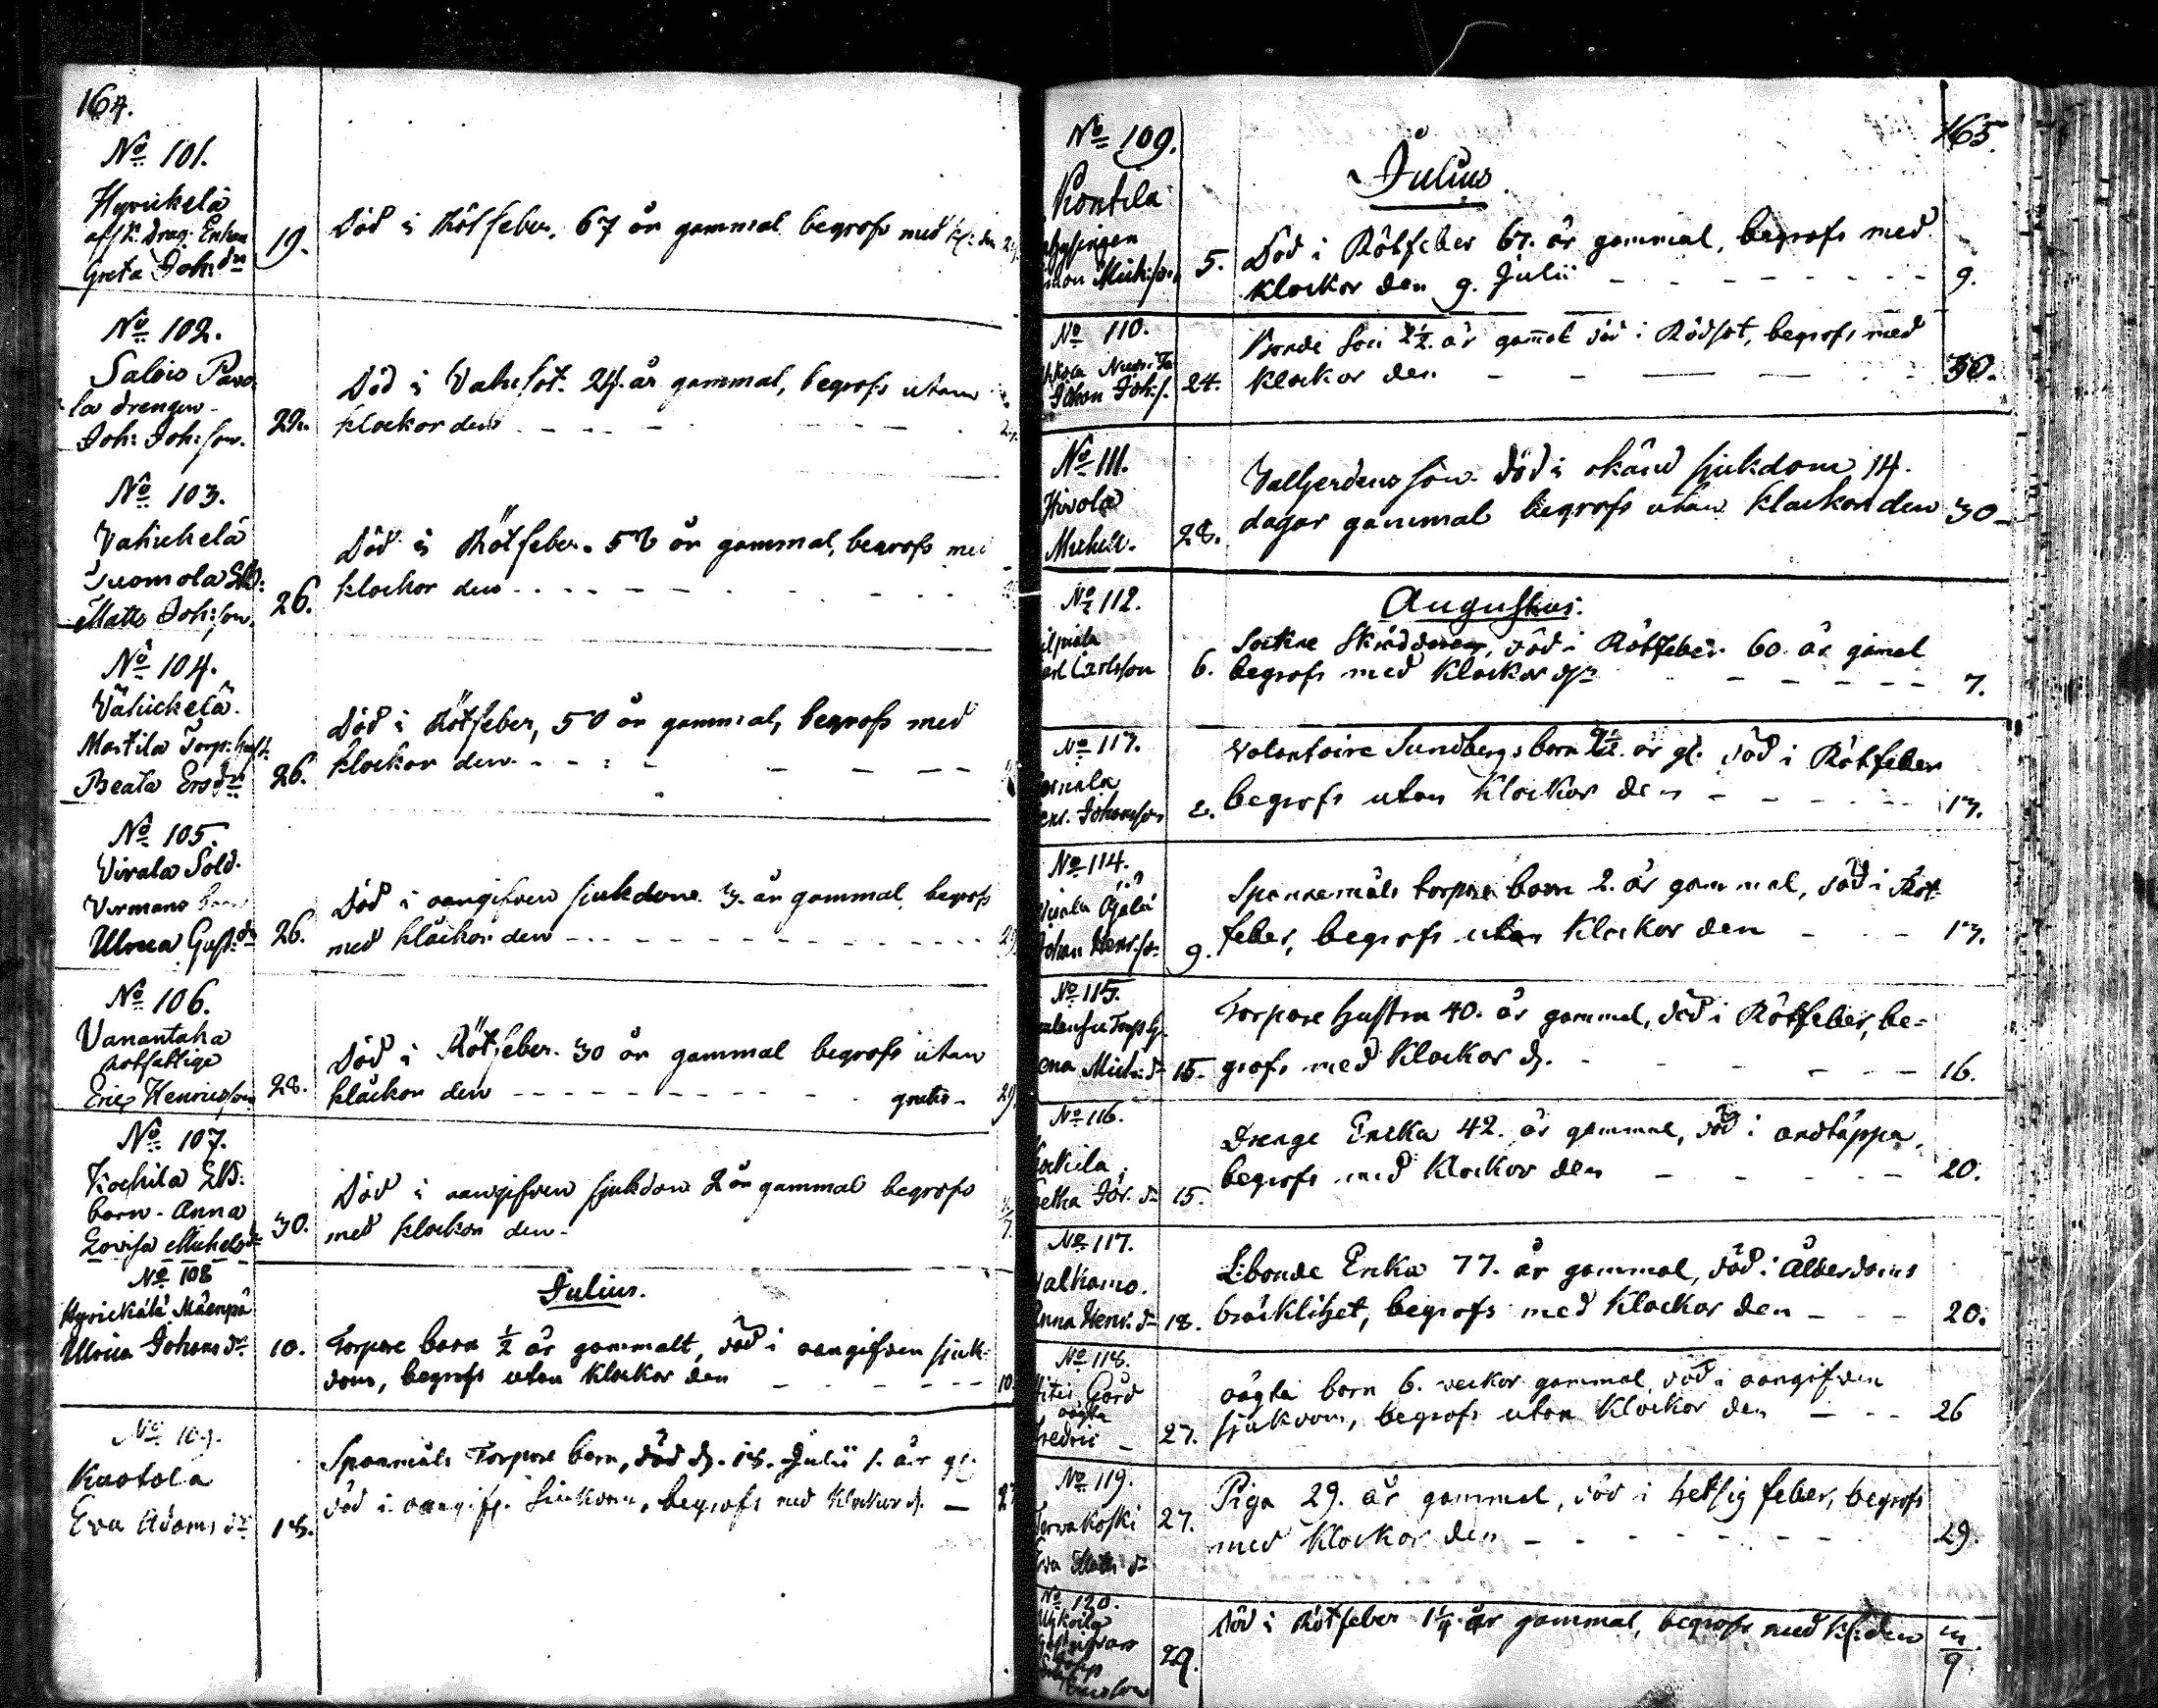 164.
No 101.
Hyrickelä
aff. K. Drag. Enkan
Greta Joh: dr
19.
Död i Rötfeber. 67 år gammal begrofs med kl: den
No 102.
Salois Pavo
la drengen
Joh: Joh:son.
22.
Död i 24. år gammal, begrofs utan
klockor den
No 103.
Vähickelä
Tuomola
Matts Joh:son.
26.
Död i Rötfeber. år gammal, begrofs med
klockor den
No 104.
Vähickelä.
Martila Torp: hust.
Beata Ersdr
26.
Död i Rötfeber, 50 år gammal, begrofs med
klockor den
No 105.
Virala Sold.
Vermans barn
Ulrica Gust: dr
26.
Död i oangifven sjukdom. 3. år gammal, begrofs
med klockor den
No 106.
Vanantaka
Rotfattige
Eric Henricsson
28.
Död i Rötfeber. 30 år gammal begrofs utan
klockor den gratis 29.
No 107.
barn - Anna
Lovisa Michelsdr
30.
Död i oangifven sjukdom 2 år gammal begrofs
med klockor den
No 108
Hyrickälä Mäenpä
Ulrica Johansdr
10.
Julius.
Torpare barn ½ år gammalt, död i oangifven sjuk-
dom, begrofs utan klockor den 10.
No 109.
Kaotola
Eva Adamsdr
18.
Spanmåls Torpare barn, död d. 18. Julii 1. år gl.
död i oangif. Siukdom, begrofs med klockor d.
165.
No 109.
Kontila
5.
Julius
Död i Rötfeber 67. år gammal, begrofs med
klockor den 9. Julii 9.
No 110.
Johan Joh: s.
24.
Bonde Son 2½. år gamal död i Rödsot, begrofs med
klockor den 30.
No 111.
Hivola
Michell.
28.
Vallherdens son. död i okänd sjukdom 14.
dagar gammal begrofs utan klockor den 30
No 112.
Carlsson
6.
Augustus.
Sockne Skräddaren, död i Rötfeber 60. år gamel
begrofs med klockor dn 7.
No 113.
Johansson
2.
Volontaire Sundbergs barn år gl. död i Rötfeber
begrofs utan klockor den 13.
No 114.
Johan Henr:son
9.
Spannemåls torpare barn 2. år gammal, död i Röt-
feber, begrofs utan klockor den 13.
No 115.
Mich: dr
15.
Torpare hustru 40. år gammal, död i Rötfeber, be-
grofs med klockor d. 16.
No 116.
Jör. dr
15.
Drenge Encka 42. år gammal, död i andtäppa,
begrofs med klockor den 20.
No 117.
Anna Henr. dr
18.
L:bonde Enka 77. år gammal, död i Ålderdoms
bräcklihet, begrofs med klockor den 20.
No 118.
Gård
oägta
27.
oägta barn 6. veckor gammal, död i oangifven
sjukdom, begrofs utan klockor den 26
No 119.
Tervakoski
Eva Matts dr
27.
Piga 29. år gammal, död i hetsig feber, begrofs
med klockor den 29.
No 120.
29.
Död i Rötfeber 1¼ år gammal, begrofs med kl: den